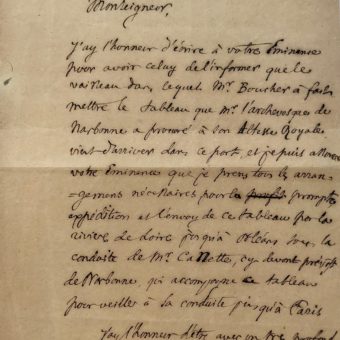 Monseigneur,
J'ay l'honneur d'écrire à vôtre Eminence
pour avoir celuy de l'informer que le
vaisseau dans lequel Mr. Boucher a fait
mettre le tableau que Mr. l'archevesque de
Narbonne a procuré à son Altesse Royale
vient d'arriver dans ce port, et je puis assurer
vôtre Eminence que je prens tous les arran-
gemens nécessaires pour la prompte
expédition et l'envoy de ce tableau par la
riviere de Loire jusqu'à Orléans sous la
conduite de Mr. , cy devant
de Narbonne, qui accompagne ce tableau
pour veiller à sa conduite jusqu'à Paris
J'ay l'honneur d'être avec un très profond